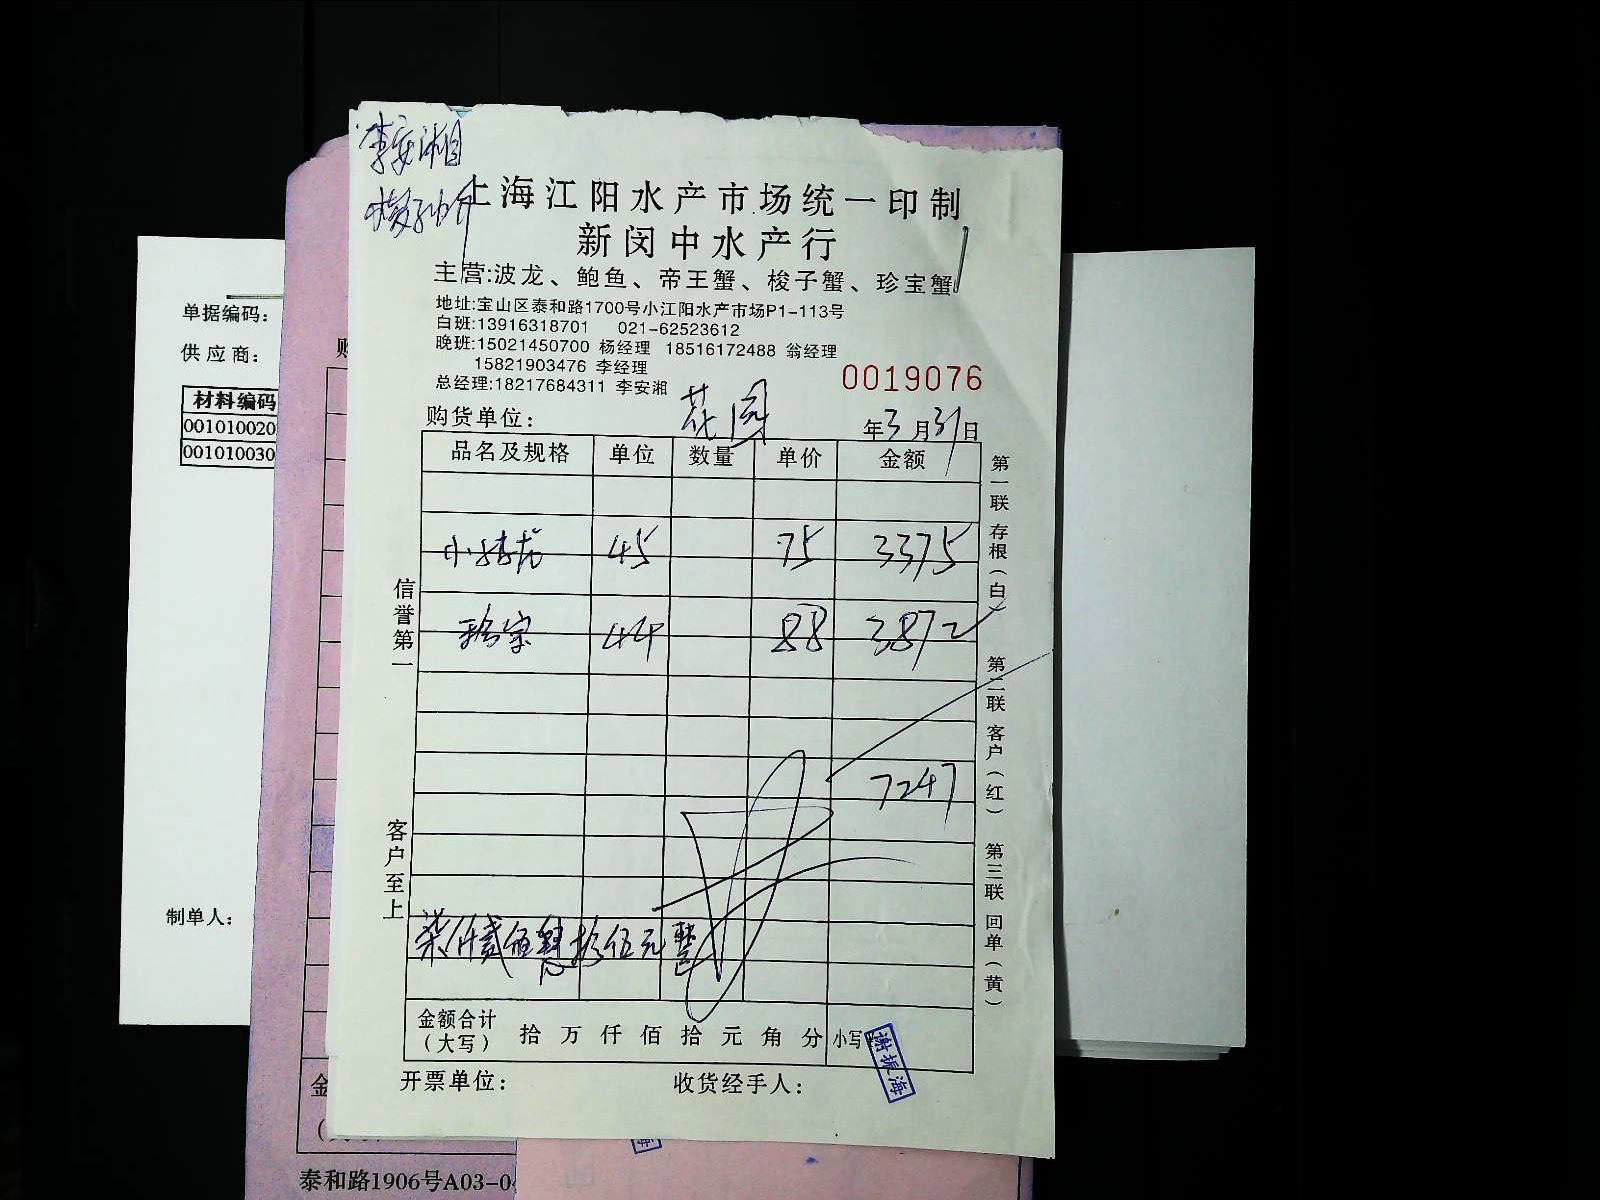 李安湘
上海江阳水产市场统一印制
新闵中水产行
主营:波龙、鲍鱼、帝王蟹、梭子蟹、珍宝蟹
地址:宝山区泰和路1700号小江阳水产市场P1-113号
白班:13916318701 021-62523612
晚班:15021450700 杨经理 18516172488 翁经理
15821903476 李经理
总经理:18217684311 李安湘
0019076
购货单位: 花园 年3月31日
品名及规格 单位 数量 单价 金额
小青龙 45 75 3375
珍宝 44 88 3872
7247
柒仟贰佰 拾 元整
金额合计(大写) 拾 万 仟 佰 拾 元 角 分 小写
谢振海
开票单位: 收货经手人:
信誉第一
客户至上
第一联 存根(白)
第二联 客户(红)
第三联 回单(黄)
单据编码:
供应商:
材料编码
00101002
00101003
制单人:
泰和路1906号A03-0